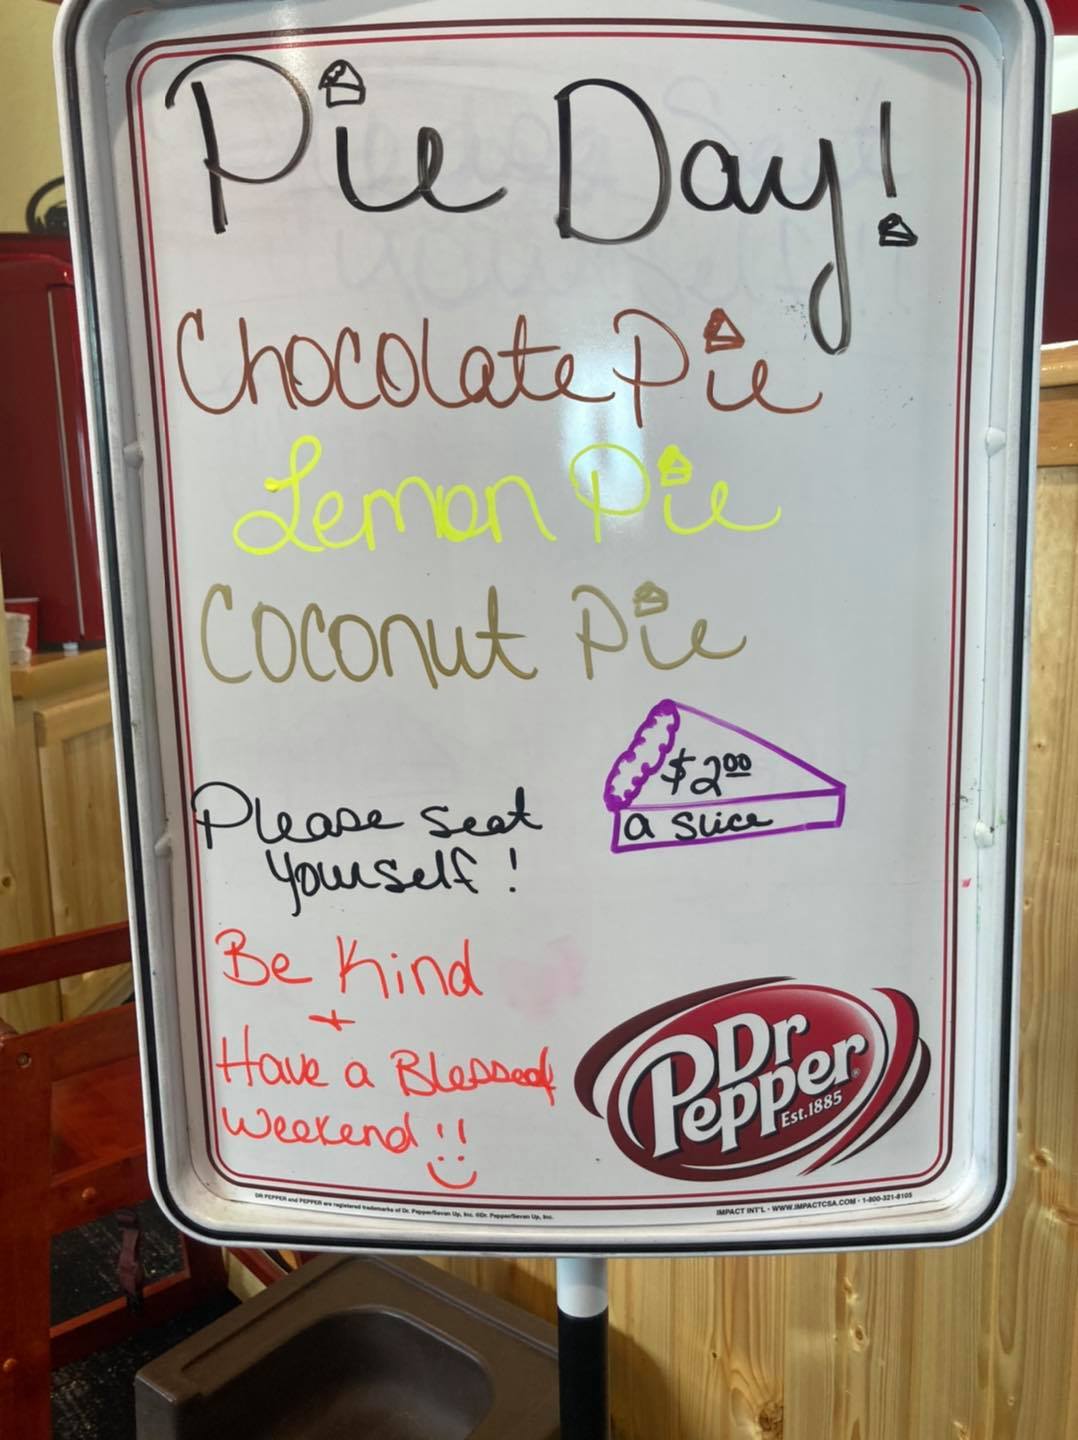 Pie Day!
Chocolate Pie
Lemon Pie
Coconut Pie
$2.00
a slice
Please seat
yourself!
Be Kind
+
Have a Blessed
Weekend!!
Dr
Pepper
Est.1885
DR PEPPER and PEPPER are registered trademarks of Dr. Pepper/Seven Up, Inc. ©Dr. Pepper/Seven Up, Inc.
IMPACT INT'L • WWW.IMPACTCSA.COM • 1-800-321-8105